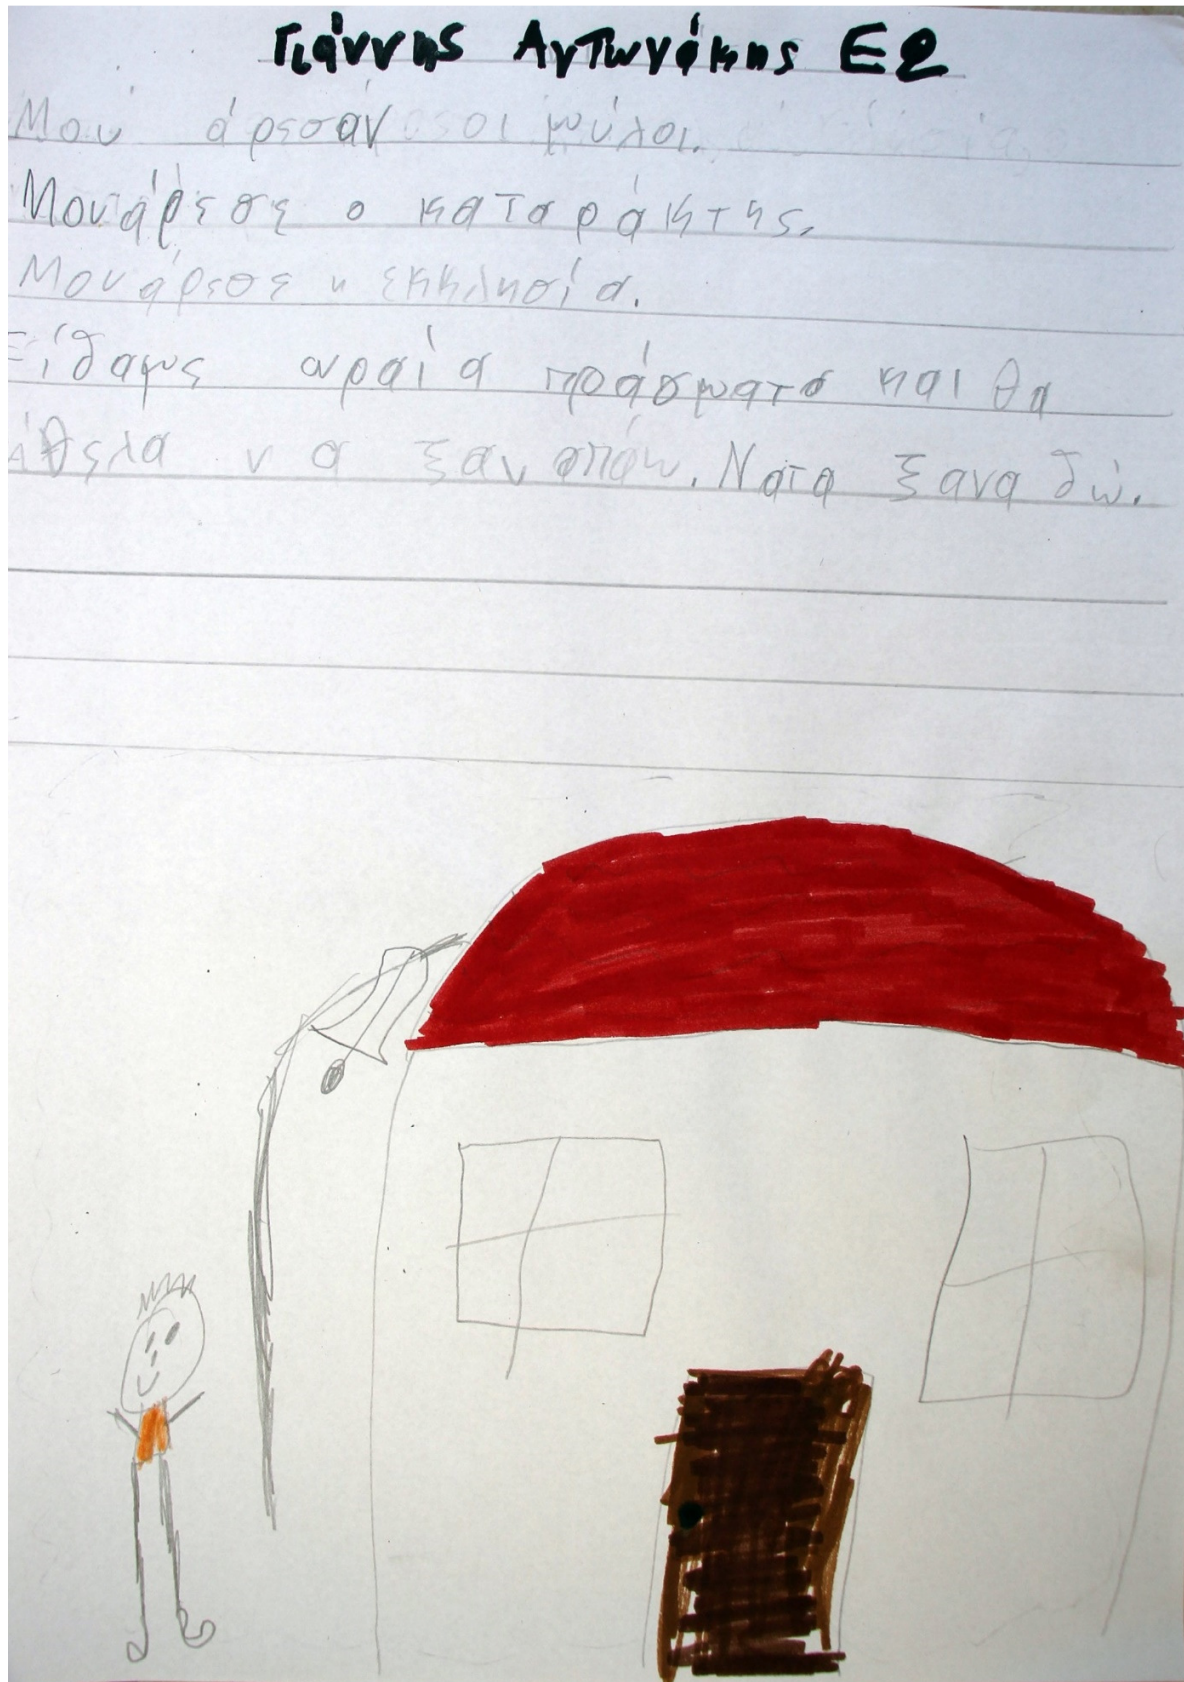 Γιάννης Αντωνάκης Ε2
Μου άρεσαν οι μύλοι.
Μου άρεσε ο καταράκτης.
Μου άρεσε η εκκλησία.
Είδαμε ωραία πράσματα και θα
ήθελα να ξαναπάω. Να τα ξανα δώ.